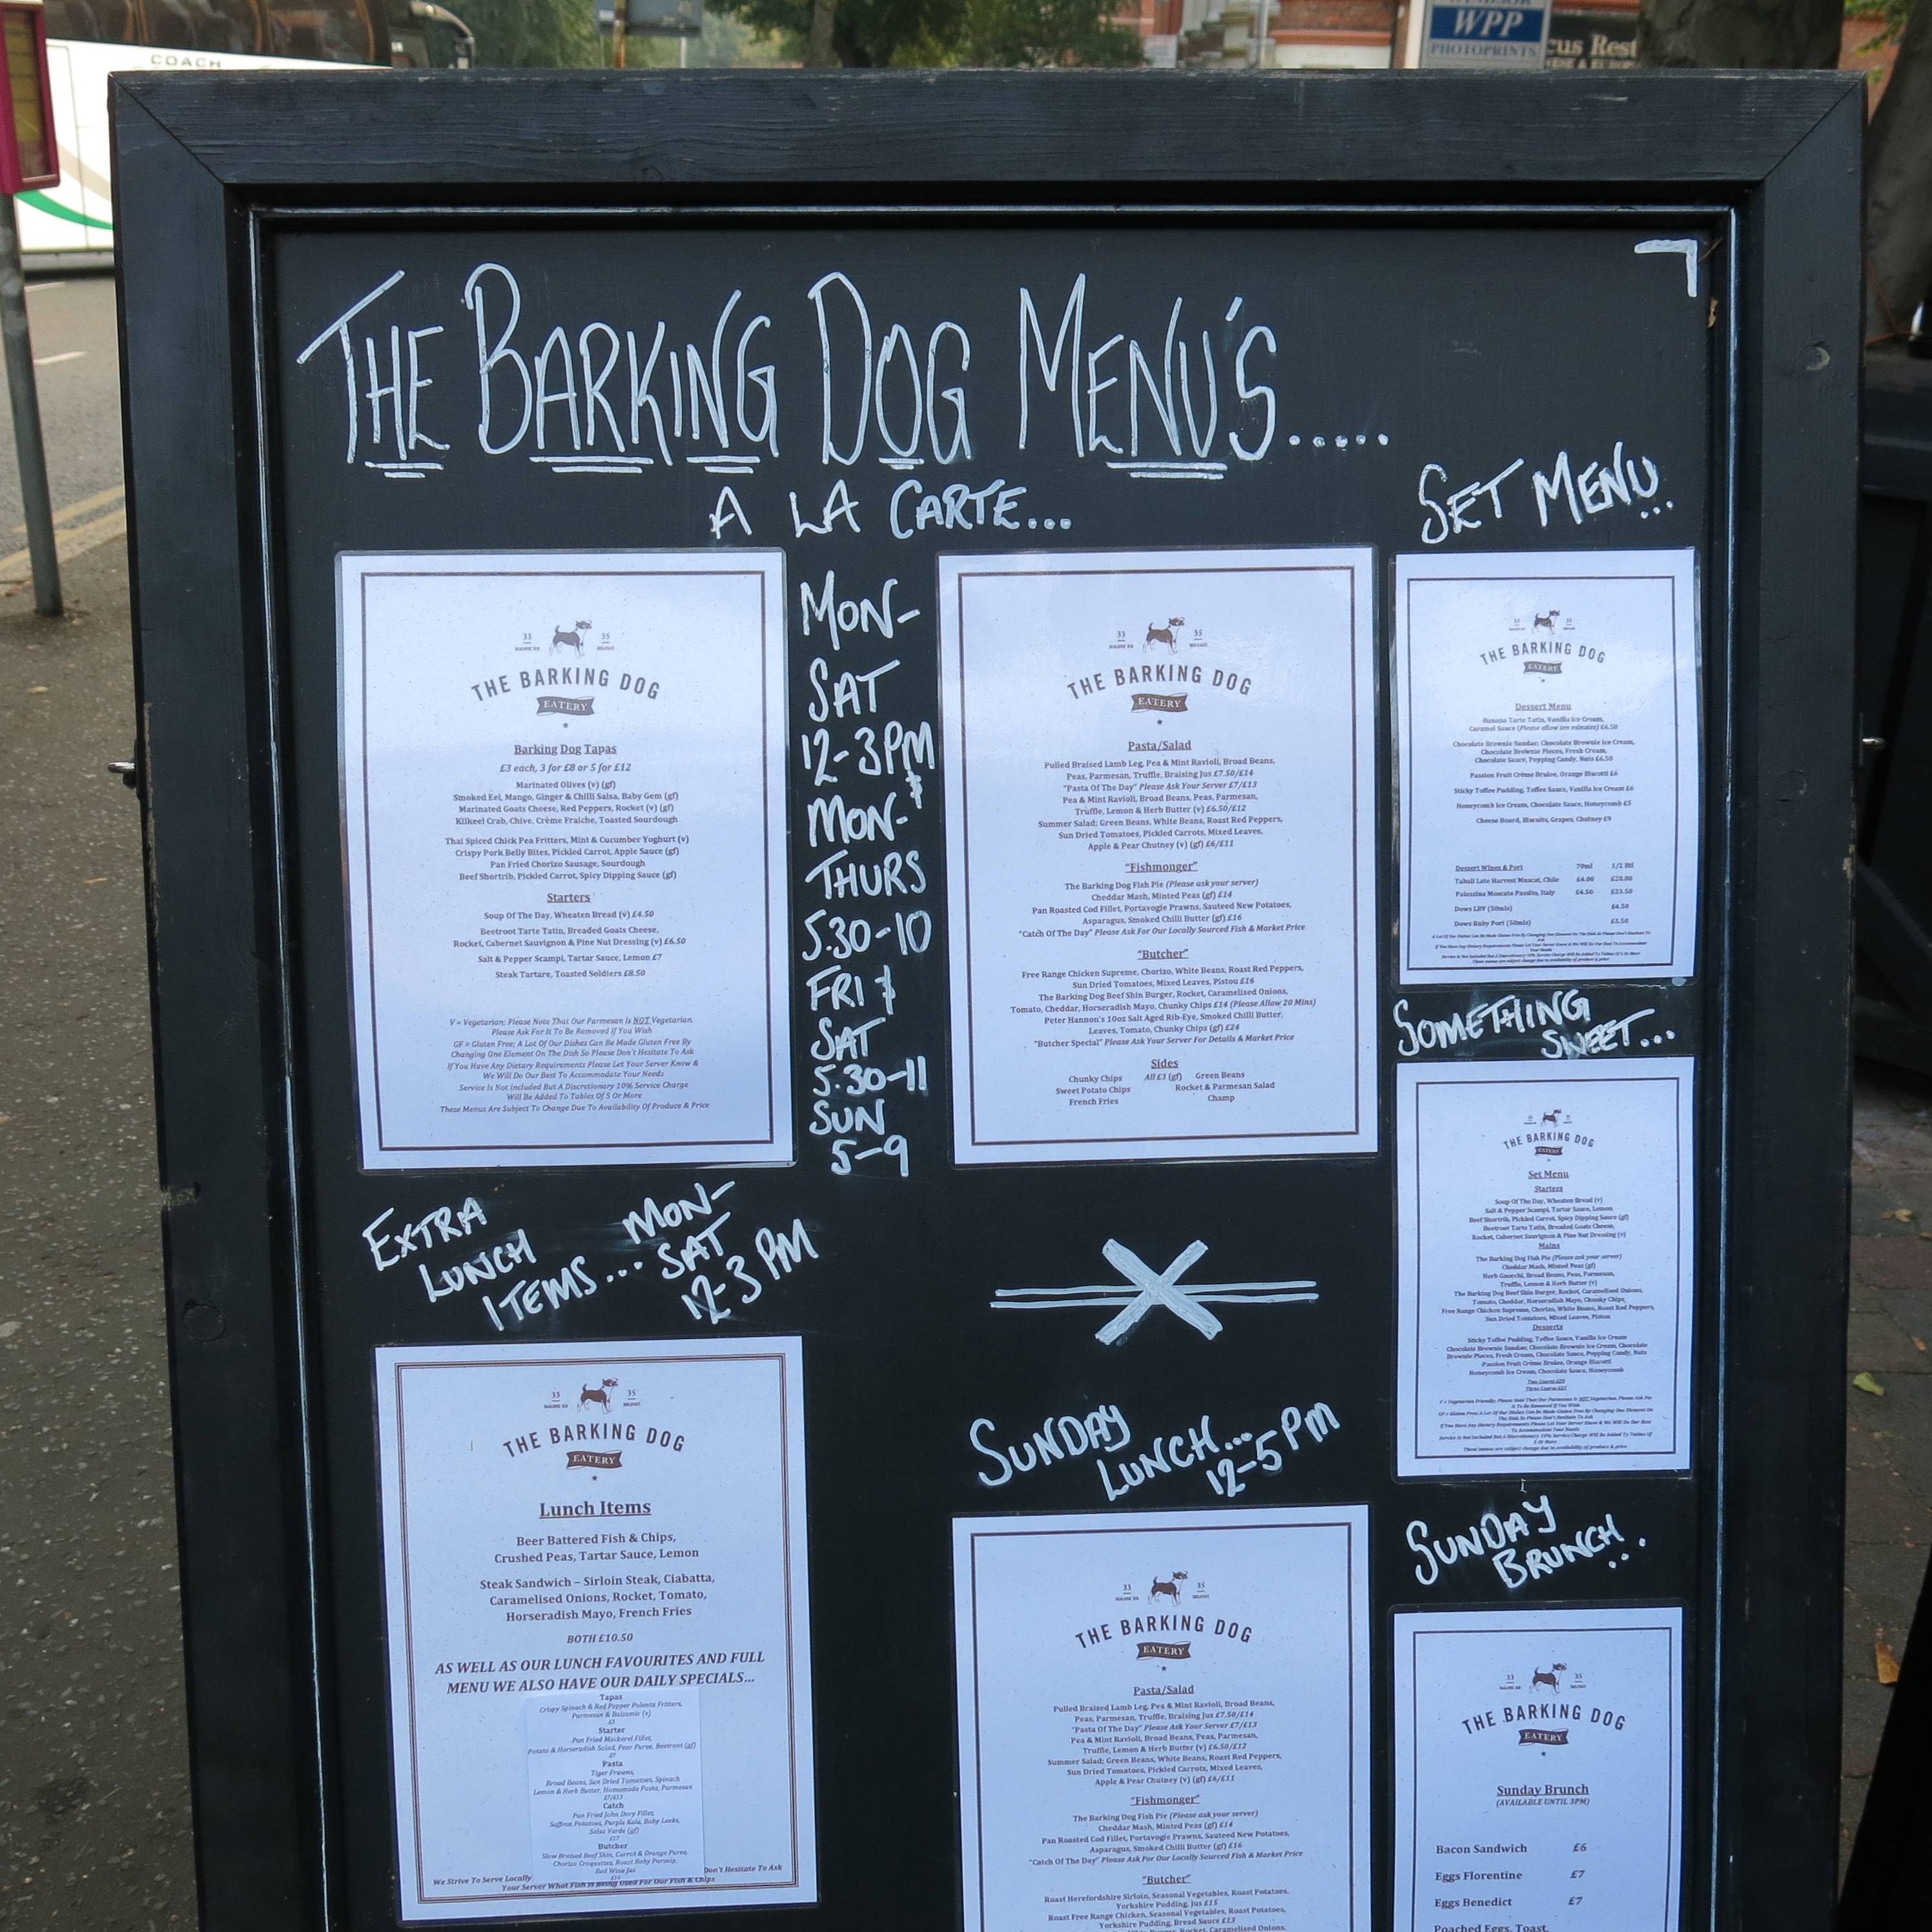 COACH
WPP
PHOTOPRINTS
cus Rest
THE BARKING DOG MENU'S.....
A LA CARTE...
SET MENU...
33 35
MALONE RD BELFAST
THE BARKING DOG
EATERY
Barking Dog Tapas
£3 each, 3 for £8 or 5 for £12
Marinated Olives (v) (gf)
Smoked Eel, Mango, Ginger & Chilli Salsa, Baby Gem (gf)
Marinated Goats Cheese, Red Peppers, Rocket (v) (gf)
Kilkeel Crab, Chive, Crème Fraiche, Toasted Sourdough
Thai Spiced Chick Pea Fritters, Mint & Cucumber Yoghurt (v)
Crispy Pork Belly Bites, Pickled Carrot, Apple Sauce (gf)
Pan Fried Chorizo Sausage, Sourdough
Beef Shortrib, Pickled Carrot, Spicy Dipping Sauce (gf)
Starters
Soup Of The Day, Wheaten Bread (v) £4.50
Beetroot Tarte Tatin, Breaded Goats Cheese,
Rocket, Cabernet Sauvignon & Pine Nut Dressing (v) £6.50
Salt & Pepper Scampi, Tartar Sauce, Lemon £7
Steak Tartare, Toasted Soldiers £8.50
V = Vegetarian; Please Note That Our Parmesan Is NOT Vegetarian.
Please Ask For It To Be Removed If You Wish
GF = Gluten Free; A Lot Of Our Dishes Can Be Made Gluten Free By
Changing One Element On The Dish So Please Don't Hesitate To Ask
If You Have Any Dietary Requirements Please Let Your Server Know &
We Will Do Our Best To Accommodate Your Needs
Service Is Not Included But A Discretionary 10% Service Charge
Will Be Added To Tables Of 5 Or More
These Menus Are Subject To Change Due To Availability Of Produce & Price
MON-
SAT
12-3PM
&
MON-
THURS
5.30-10
FRI &
SAT
5.30-11
SUN
5-9
33 35
MALONE RD BELFAST
THE BARKING DOG
EATERY
Pasta/Salad
Pulled Braised Lamb Leg, Pea & Mint Ravioli, Broad Beans,
Peas, Parmesan, Truffle, Braising Jus £7.50/£14
"Pasta Of The Day" Please Ask Your Server £7/£13
Pea & Mint Ravioli, Broad Beans, Peas, Parmesan,
Truffle, Lemon & Herb Butter (v) £6.50/£12
Summer Salad; Green Beans, White Beans, Roast Red Peppers,
Sun Dried Tomatoes, Pickled Carrots, Mixed Leaves,
Apple & Pear Chutney (v) (gf) £6/£11
"Fishmonger"
The Barking Dog Fish Pie (Please ask your server)
Cheddar Mash, Minted Peas (gf) £14
Pan Roasted Cod Fillet, Portavogie Prawns, Sauteed New Potatoes,
Asparagus, Smoked Chilli Butter (gf) £16
"Catch Of The Day" Please Ask For Our Locally Sourced Fish & Market Price
"Butcher"
Free Range Chicken Supreme, Chorizo, White Beans, Roast Red Peppers,
Sun Dried Tomatoes, Mixed Leaves, Pistou £16
The Barking Dog Beef Shin Burger, Rocket, Caramelised Onions,
Tomato, Cheddar, Horseradish Mayo, Chunky Chips £14 (Please Allow 20 Mins)
Peter Hannon's 10oz Salt Aged Rib-Eye, Smoked Chilli Butter,
Leaves, Tomato, Chunky Chips (gf) £24
"Butcher Special" Please Ask Your Server For Details & Market Price
Sides
Chunky Chips All £3 (gf) Green Beans
Sweet Potato Chips Rocket & Parmesan Salad
French Fries Champ
THE BARKING DOG
EATERY
Dessert Menu
Banana Tarte Tatin, Vanilla Ice Cream,
Caramel Sauce (Please allow ten minutes) £6.50
Chocolate Brownie Sundae; Chocolate Brownie Ice Cream,
Chocolate Brownie Pieces, Fresh Cream,
Chocolate Sauce, Popping Candy, Nuts £6.50
Passion Fruit Crème Brulee, Orange Biscotti £6
Sticky Toffee Pudding, Toffee Sauce, Vanilla Ice Cream £6
Honeycomb Ice Cream, Chocolate Sauce, Honeycomb £5
Cheese Board, Biscuits, Grapes, Chutney £9
Dessert Wines & Port 70ml 1/2 Btl
Tabali Late Harvest Muscat, Chile £4.00 £20.00
Palazzina Moscato Passito, Italy £4.50 £23.50
Dows LBV (50mls) £4.50
Dows Ruby Port (50mls) £3.50
SOMETHING
SWEET...
THE BARKING DOG
EATERY
Set Menu
Starters
Soup Of The Day, Wheaten Bread (v)
Salt & Pepper Scampi, Tartar Sauce, Lemon
Beef Shortrib, Pickled Carrot, Spicy Dipping Sauce (gf)
Beetroot Tarte Tatin, Breaded Goats Cheese,
Rocket, Cabernet Sauvignon & Pine Nut Dressing (v)
Mains
The Barking Dog Fish Pie (Please ask your server)
Cheddar Mash, Minted Peas (gf)
Herb Gnocchi, Broad Beans, Peas, Parmesan,
Truffle, Lemon & Herb Butter (v)
The Barking Dog Beef Shin Burger, Rocket, Caramelized Onions,
Tomato, Cheddar, Horseradish Mayo, Chunky Chips
Free Range Chicken Supreme, Chorizo, White Beans, Roast Red Peppers,
Sun Dried Tomatoes, Mixed Leaves, Pistou
Desserts
Sticky Toffee Pudding, Toffee Sauce, Vanilla Ice Cream
Chocolate Brownie Sundae; Chocolate Brownie Ice Cream, Chocolate
Brownie Pieces, Fresh Cream, Chocolate Sauce, Popping Candy, Nuts
Passion Fruit Crème Brulee, Orange Biscotti
Honeycomb Ice Cream, Chocolate Sauce, Honeycomb
EXTRA
LUNCH
ITEMS...
MON-
SAT
12-3 PM
33 35
MALONE RD BELFAST
THE BARKING DOG
EATERY
Lunch Items
Beer Battered Fish & Chips,
Crushed Peas, Tartar Sauce, Lemon
Steak Sandwich – Sirloin Steak, Ciabatta,
Caramelised Onions, Rocket, Tomato,
Horseradish Mayo, French Fries
BOTH £10.50
AS WELL AS OUR LUNCH FAVOURITES AND FULL
MENU WE ALSO HAVE OUR DAILY SPECIALS...
Tapas
Crispy Spinach & Red Pepper Polenta Fritters,
Parmesan & Balsamic (v)
£3
Starter
Pan Fried Mackerel Fillet,
Potato & Horseradish Salad, Pear Puree, Beetroot (gf)
£7
Pasta
Tiger Prawns,
Broad Beans, Sun Dried Tomatoes, Spinach
Lemon & Herb Butter, Homemade Pasta, Parmesan
£7/£13
Catch
Pan Fried John Dory Fillet,
Saffron Potatoes, Purple Kale, Baby Leeks,
Salsa Verde (gf)
£17
Butcher
Slow Braised Beef Shin, Carrot & Orange Puree,
Chorizo Croquettes, Roast Baby Parsnip,
Red Wine Jus
We Strive To Serve Locally Don't Hesitate To Ask
Your Server What Fish Is Being Used For Our Fish & Chips
SUNDAY
LUNCH...
12-5PM
33 35
MALONE RD BELFAST
THE BARKING DOG
EATERY
Pasta/Salad
Pulled Braised Lamb Leg, Pea & Mint Ravioli, Broad Beans,
Peas, Parmesan, Truffle, Braising Jus £7.50/£14
"Pasta Of The Day" Please Ask Your Server £7/£13
Pea & Mint Ravioli, Broad Beans, Peas, Parmesan,
Truffle, Lemon & Herb Butter (v) £6.50/£12
Summer Salad; Green Beans, White Beans, Roast Red Peppers,
Sun Dried Tomatoes, Pickled Carrots, Mixed Leaves,
Apple & Pear Chutney (v) (gf) £6/£11
"Fishmonger"
The Barking Dog Fish Pie (Please ask your server)
Cheddar Mash, Minted Peas (gf) £14
Pan Roasted Cod Fillet, Portavogie Prawns, Sauteed New Potatoes,
Asparagus, Smoked Chilli Butter (gf) £16
"Catch Of The Day" Please Ask For Our Locally Sourced Fish & Market Price
"Butcher"
Roast Herefordshire Sirloin, Seasonal Vegetables, Roast Potatoes,
Yorkshire Pudding, Jus £15
Roast Free Range Chicken, Seasonal Vegetables, Roast Potatoes,
Yorkshire Pudding, Bread Sauce £13
Burger, Rocket, Caramelized Onions,
SUNDAY
BRUNCH...
33 35
MALONE RD BELFAST
THE BARKING DOG
EATERY
Sunday Brunch
(AVAILABLE UNTIL 3PM)
Bacon Sandwich £6
Eggs Florentine £7
Eggs Benedict £7
Poached Eggs, Toast,